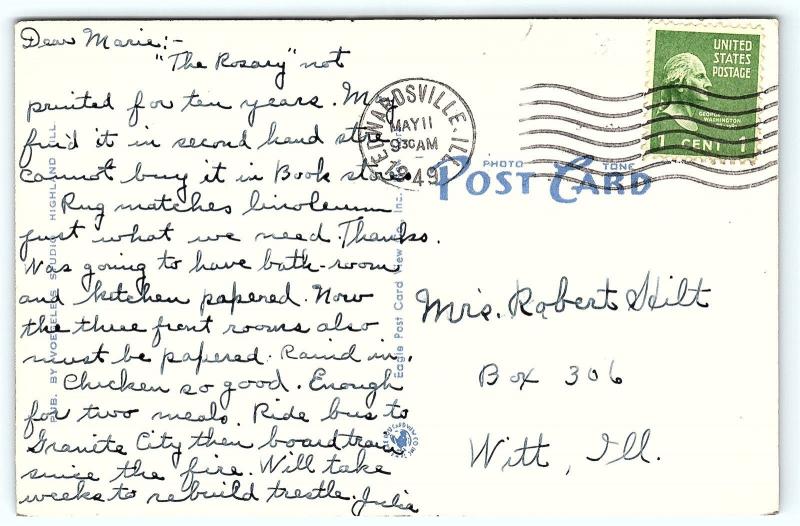 Dear Marie:-
"The Rosary" not
printed for ten years. May
find it in second hand store
cannot buy it in Book store.
Rug matches linoleum
just what we need. Thanks.
Was going to have bath-room
and kitchen papered. Now
the three front rooms also
must be papered. Raind in.
Chicken so good. Enough
for two meals. Ride bus to
Granite City then board train
since the fire. Will take
weeks to rebuild trestle. Julia
PUB. BY VOEGELE'S STUDIO, HIGHLAND, ILL.
Eagle Post Card View Co., Inc.
EDWARDSVILLE, ILL.
MAY 11
930 AM
1949
UNITED
STATES
POSTAGE
GEORGE
WASHINGTON
1 CENT 1
PHOTO TONE
POST CARD
Mrs. Robert Hilt
Box 306
Witt, Ill.